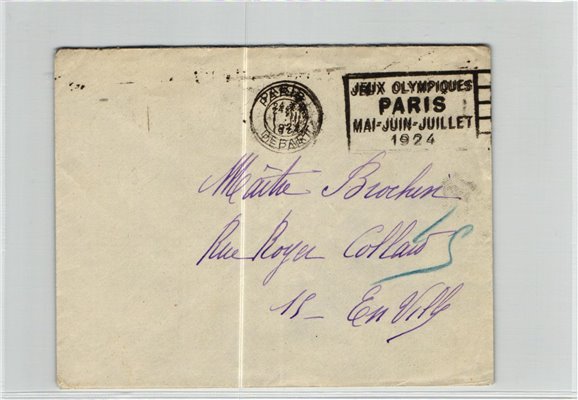 PARIS
1924
DEPART
JEUX OLYMPIQUES
PARIS
MAI-JUIN-JUILLET
1924
Maître Brochen
Rue Royer Collard
15 - En Ville
5